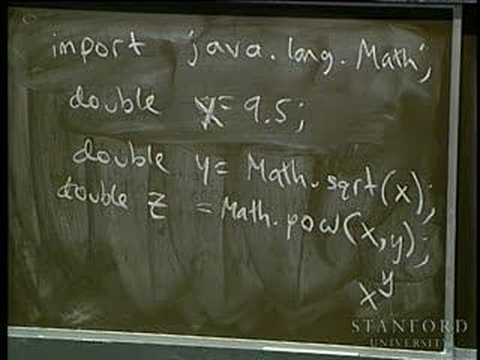 import java.lang.Math;
double x= 9.5;
double y= Math.sqrt(x);
double z = Math.pow(x,y);
x^y
STANFORD
UNIVERSITY